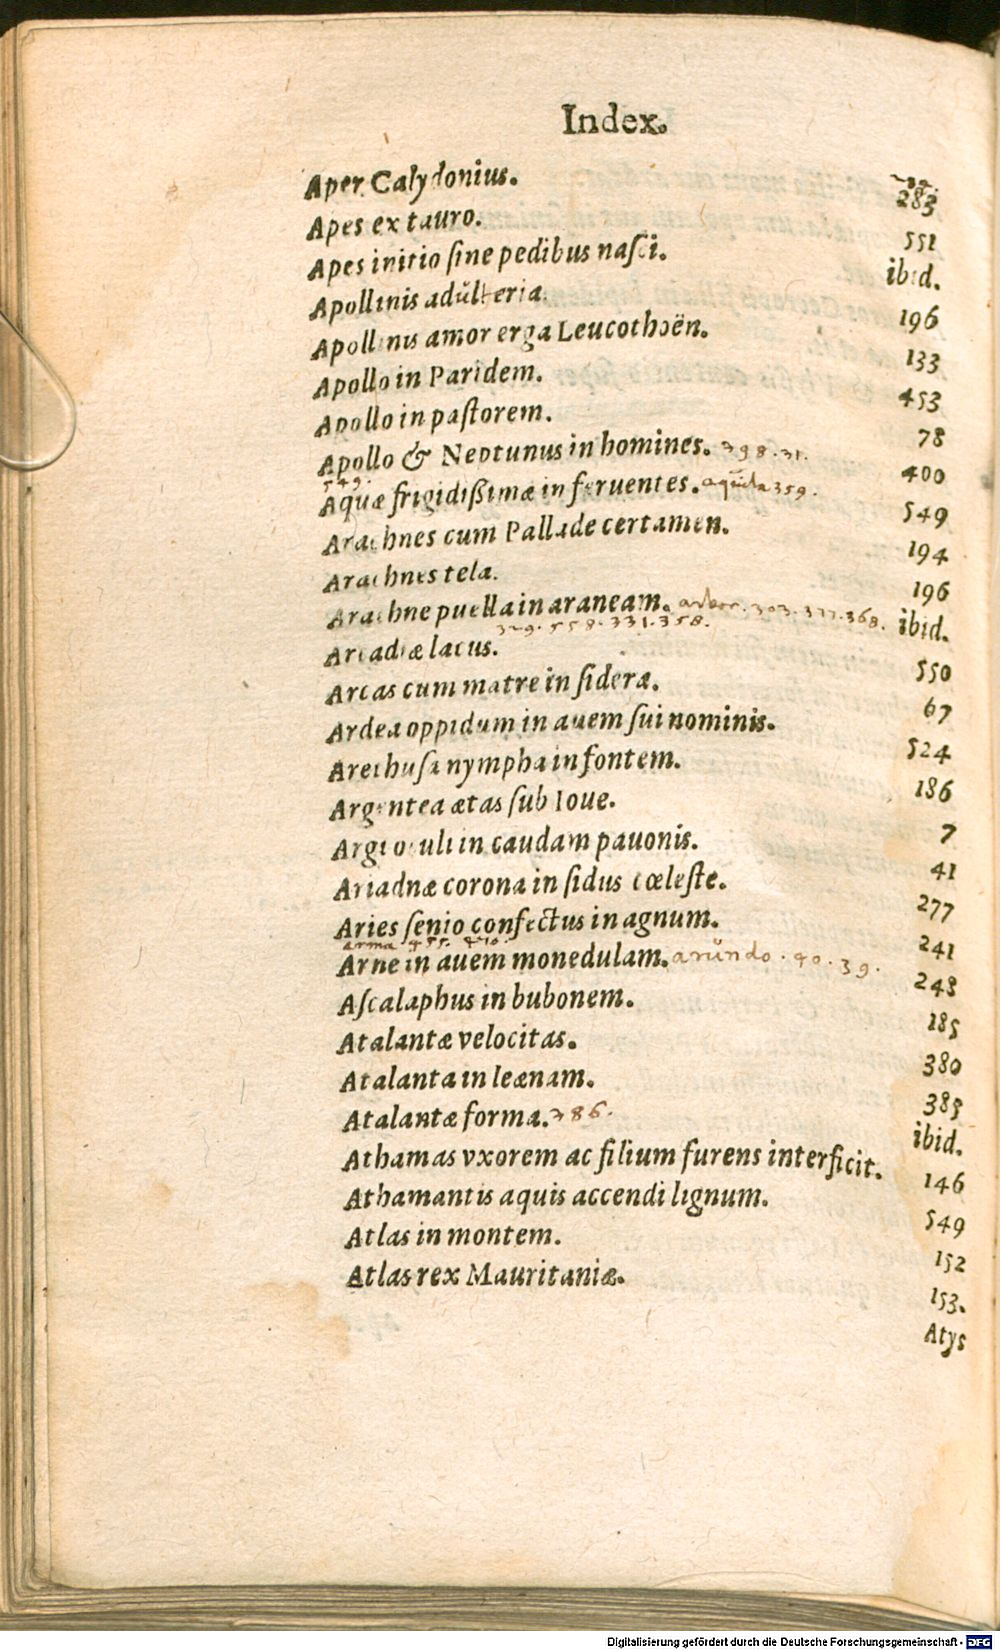 Index.
Aper Calydonius. 283
Apes ex tauro. 551
Apes initio ſine pedibus naſci. ibid.
Apollinis adulteria. 196
Apollinis amor erga Leucothoën. 133
Apollo in Paridem. 453
Apollo in paſtorem. 78
Apollo & Neptunus in homines. 398. 31. 400
549.
Aquæ frigidißimæ in feruentes. 359. 549
Arachnes cum Pallade certamen. 194
Arachnes tela. 196
Arachne puella in araneam. arbor. 303. 377. 368. ibid.
329. 558. 331. 358.
Arcadiæ lacus. 550
Arcas cum matre in ſidera. 67
Ardea oppidum in auem ſui nominis. 524
Arethuſa nympha in fontem. 186
Argentea ætas ſub Ioue. 7
Argi oculi in caudam pauonis. 41
Ariadnæ corona in ſidus cœleſte. 277
Aries ſenio confectus in agnum. 241
arma 455. 470.
Arne in auem monedulam. arŭndo. 40. 39. 248
Aſcalaphus in bubonem. 185
Atalantæ velocitas. 380
Atalanta in leænam. 385
Atalantæ forma. 386. ibid.
Athamas vxorem ac filium furens interficit. 146
Athamantis aquis accendi lignum. 549
Atlas in montem. 152
Atlas rex Mauritaniæ. 153.
Atys
Digitalisierung gefördert durch die Deutsche Forschungsgemeinschaft - DFG